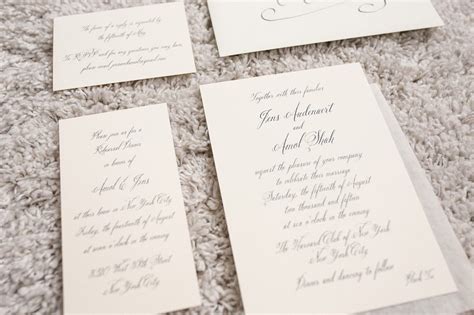 The favor of a reply is requested
by the fifteenth of
To RSVP and for any questions you may have
please email
Please join us for a
Rehearsal Dinner
in honor of
Amol & Jens
at their home in New York City
Friday, the fourteenth of August
at six o'clock in the evening
West 57th Street
New York City
Together with their families
Jens Audenaert
and
Amol Shah
request the pleasure of your company
to celebrate their marriage
Saturday, the fifteenth of August
at six o'clock in the evening
The Harvard Club of New York City
New York City
Dinner and dancing to follow
Black Tie